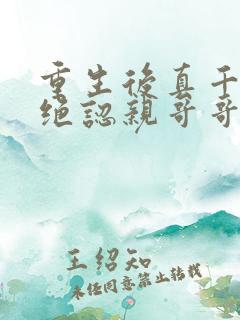 重生後真千
绝認親哥哥
王绍知
未经同意禁止转载